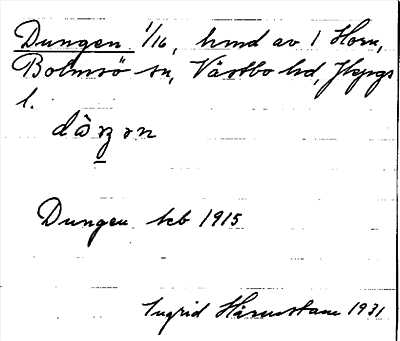 Dungen 1/16, hmd av 1 Horn,
Bolmsö sn, Västbo hd, Jkpgs
l.
dàŋən
Dungen kcb 1915
Ingrid 1931